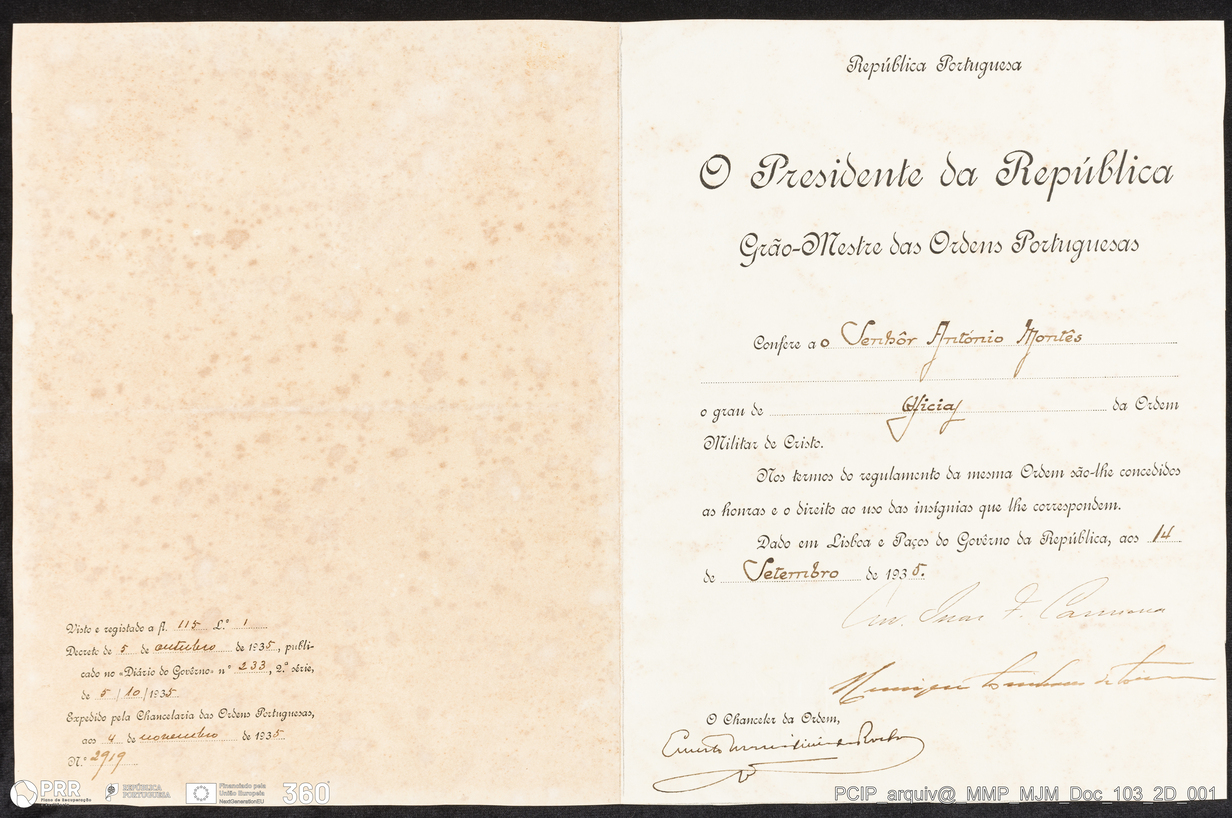 Visto e registado a fl. 115 L.º 1
Decreto de 5 de outubro de 1935, publi-
cado no «Diário do Govêrno» n.º 233, 2.ª série,
de 5/10/1935
Expedido pela Chancelaria das Ordens Portuguesas,
aos 4 de novembro de 1935.
N.º 2919
República Portuguesa
O Presidente da República
Grão-Mestre das Ordens Portuguesas
Confere ao Senhôr António Montês
o grau de Oficial da Ordem
Militar de Cristo.
Nos termos do regulamento da mesma Ordem são-lhe concedidos
as honras e o direito ao uso das insígnias que lhe correspondem.
Dado em Lisboa e Paços do Govêrno da República, aos 14
de Setembro de 1935.
Carmona
O Chanceler da Ordem,
PRR
Plano de Recuperação
REPÚBLICA
PORTUGUESA
Financiado pela
União Europeia
NextGenerationEU
360°
PCIP_arquiv@_MMP_MJM_Doc_103_2D_001